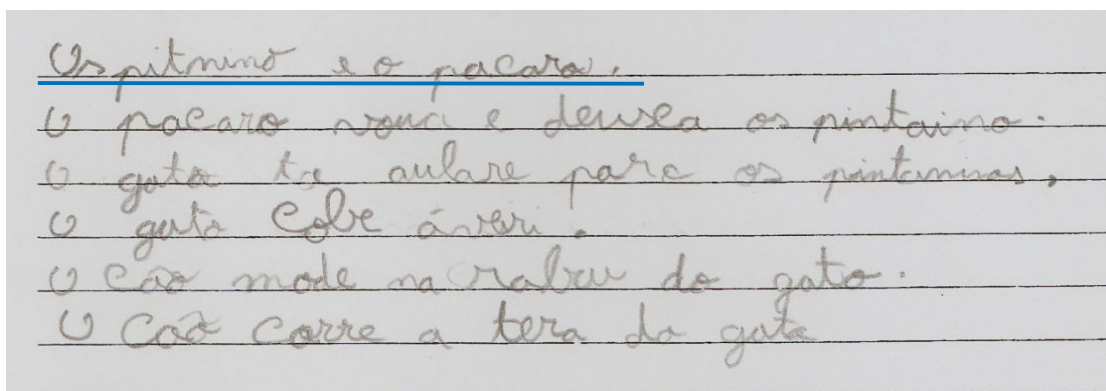 Os pitnino e o pacaro.
O pacaro voua e deusea os pintaino.
O gato ta aulare para os pintaninos,
O gato cobe áveri.
O Cão mode na rabu do gato.
O Cão Corre a tera do gato